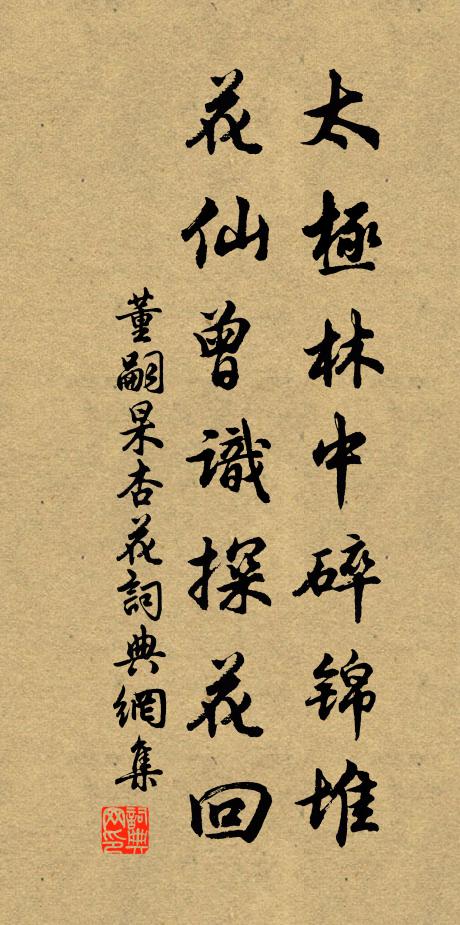 太極林中碎錦堆
花仙曾識探花回
董嗣杲杏花詞典網集
詞典网印